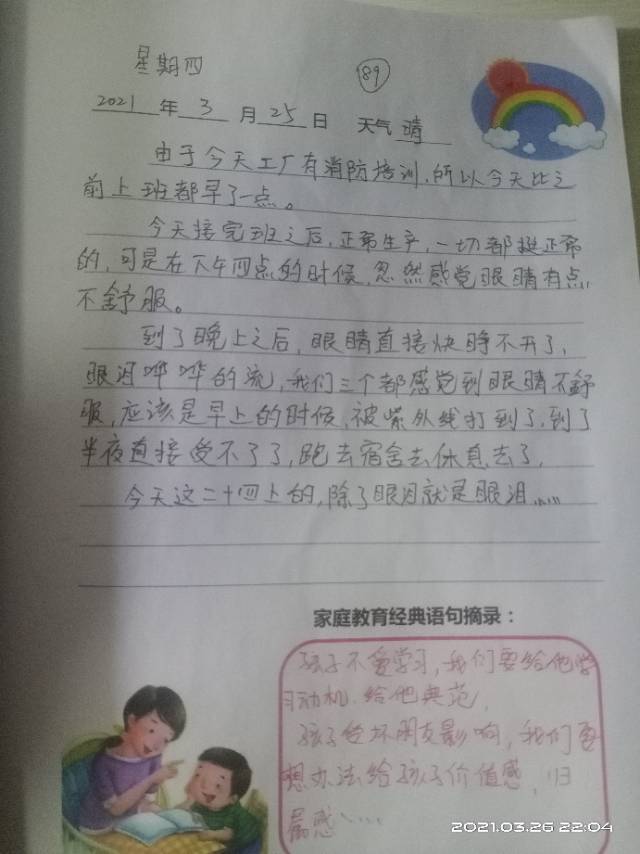 星期四
89
2021年3月25日 天气晴
由于今天工厂有消防培训,所以今天比之
前上班都早了一点。
今天接完班之后,正常生产,一切都挺正常
的,可是在下午四点的时候,忽然感觉眼睛有点
不舒服。
到了晚上之后,眼睛直接快睁不开了,
眼泪哗哗的流,我们三个都感觉到眼睛不舒
服,应该是早上的时候,被紫外线打到了,到了
半夜直接受不了了,跑去宿舍去休息去了,
今天这二十四上的,除了眼泪就是眼泪……
家庭教育经典语句摘录:
孩子不爱学习,我们要给他学
习动机,给他典范,
孩子受坏朋友影响,我们要
想办法给孩子价值感,归
属感……
2021.03.26 22:04